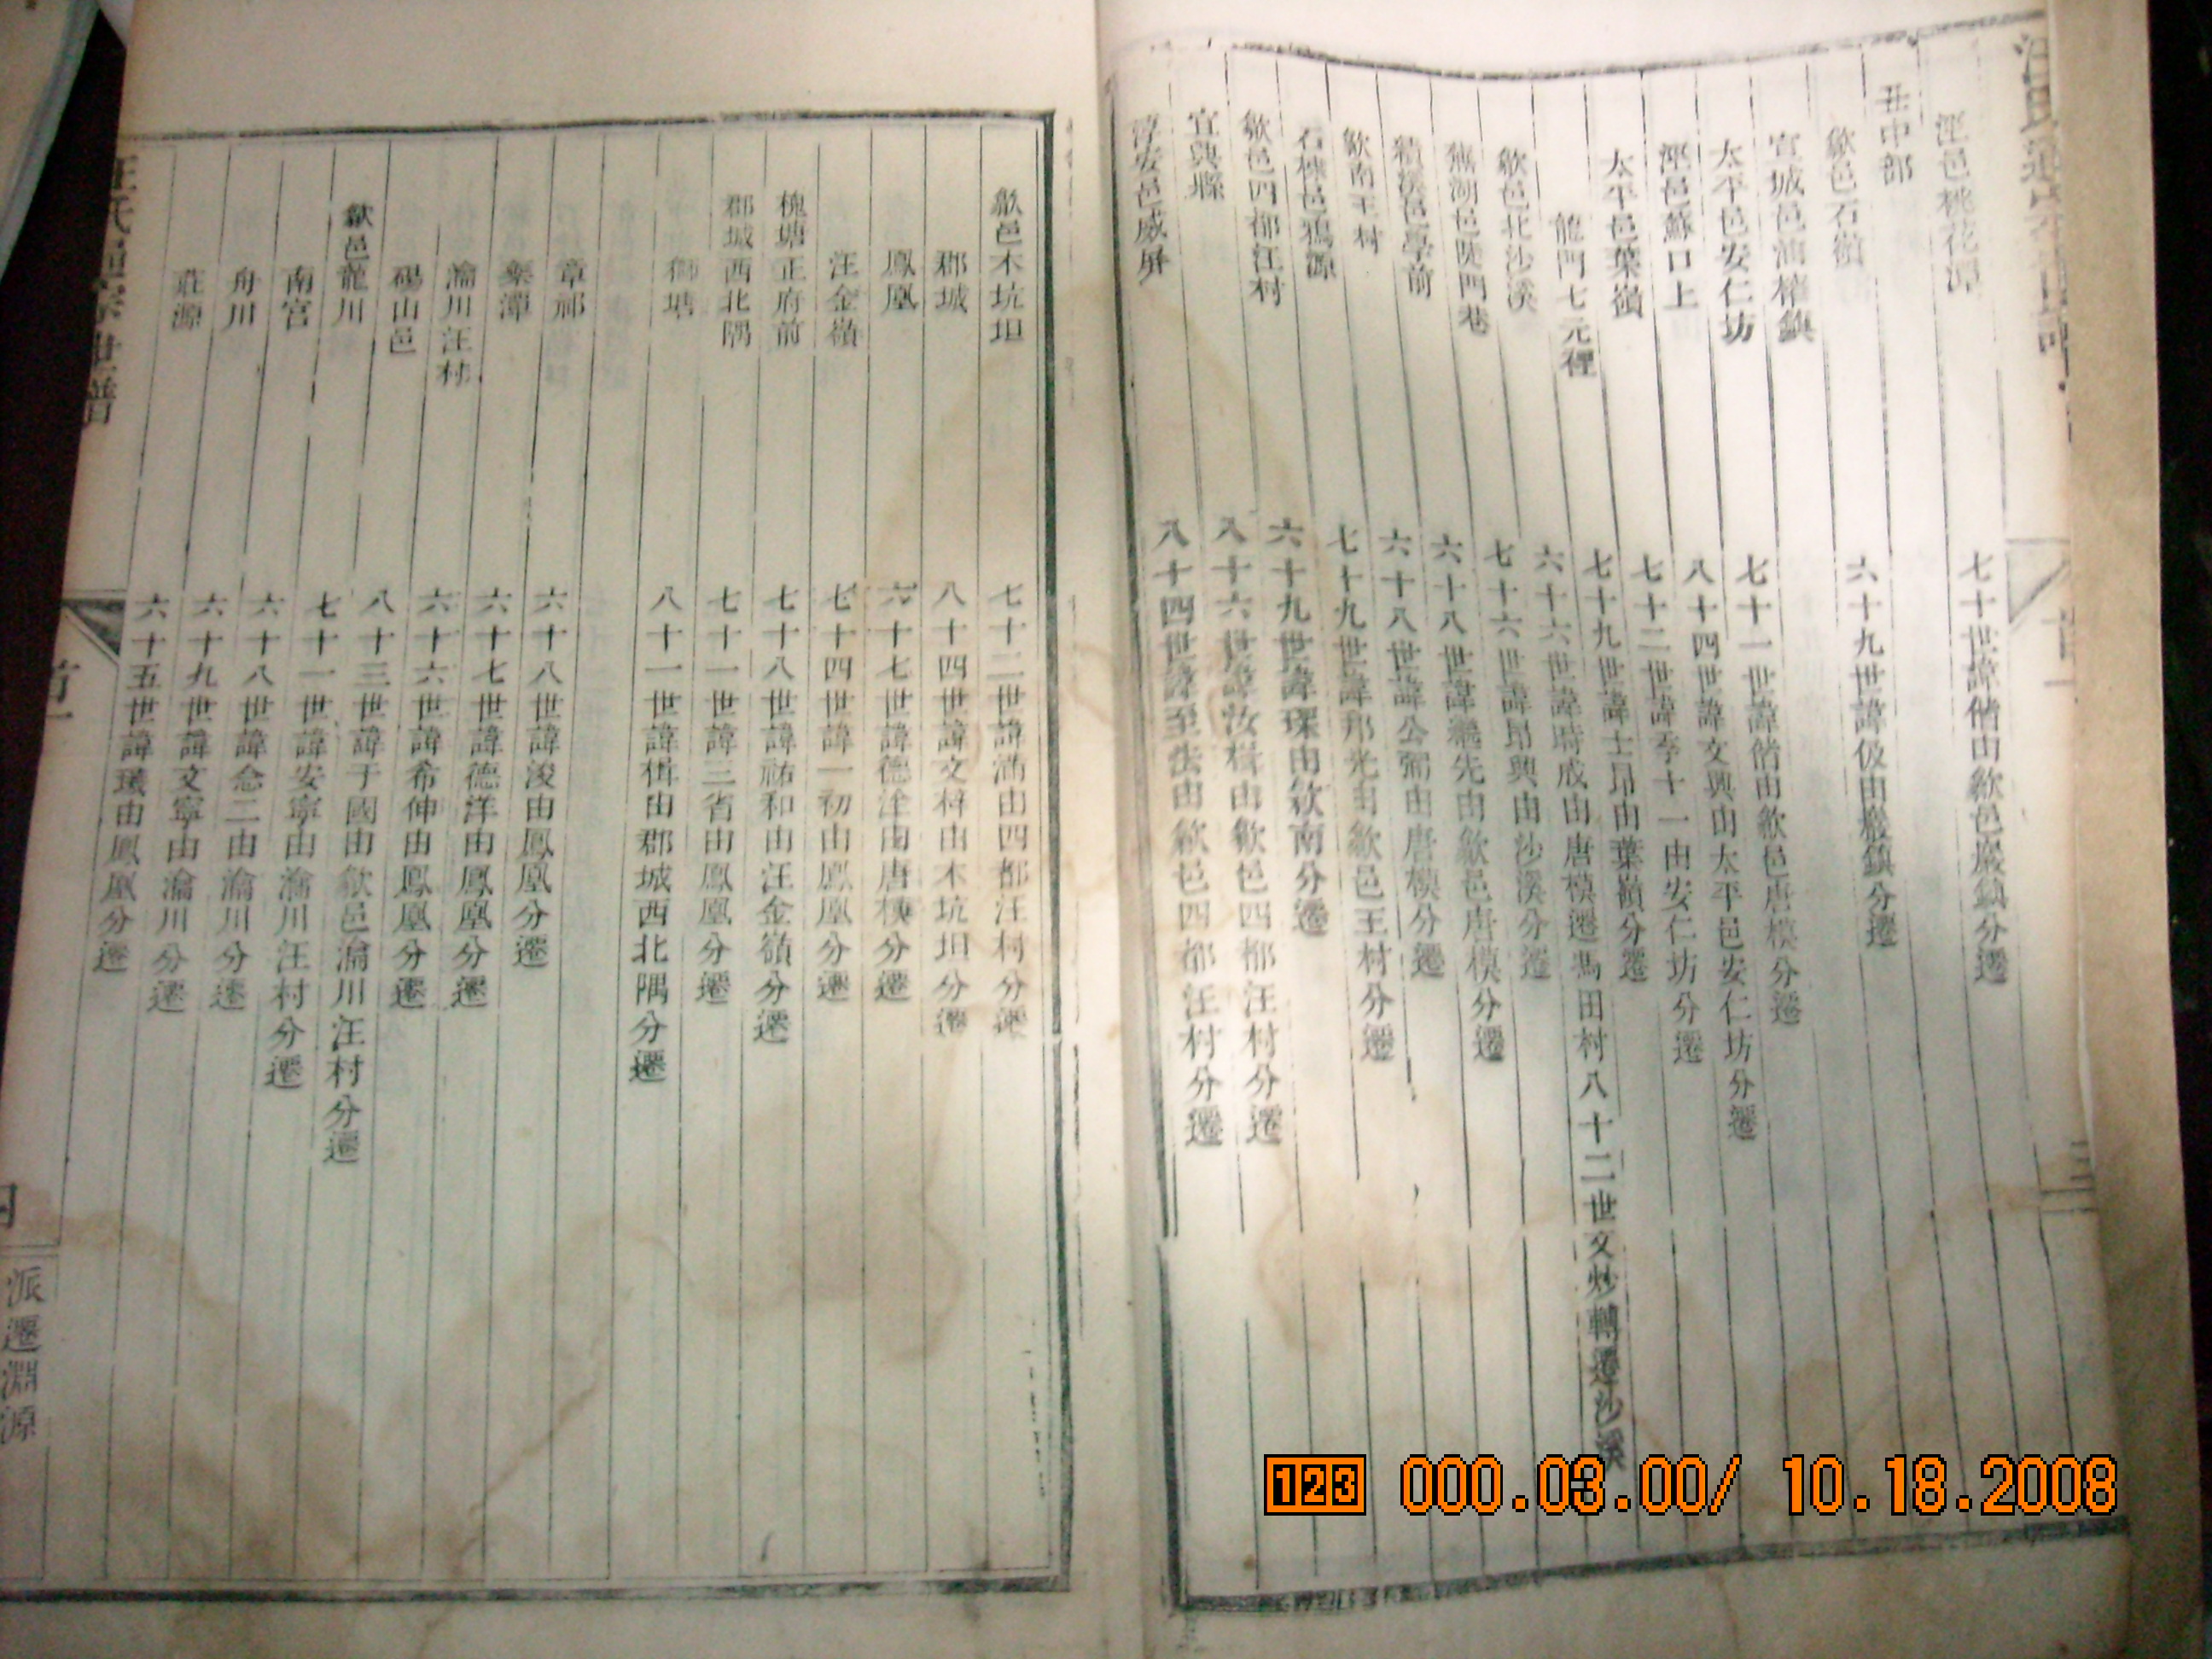 涇邑桃花潭 七十世諱偕由歙邑巖鎮分遷
中部
歙邑石嶺 六十九世諱伋由巖鎮分遷
宣城邑油榨鎮 七十一世諱偕由歙邑唐模分遷
太平邑安仁坊 八十四世諱文興由太平邑安仁坊分遷
涇邑蘇口上 七十二世諱季十一由安仁坊分遷
太平邑葉嶺 七十九世諱士昂由葉嶺分遷
龍門七元裡 六十六世諱時成由唐模遷馮田村八十二世文炒轉遷沙溪
歙邑北沙溪 七十六世諱昂興由沙溪分遷
蕪湖邑陡門巷 六十八世諱先由歙邑唐模分遷
績溪邑學前 六十八世諱公弼由唐模分遷
歙南王村 七十九世諱那光由歙邑王村分遷
石棣邑鴉源 六十九世諱琛由歙南分遷
歙邑四都汪村 八十六世諱汝楫由歙邑四都汪村分遷
宜興縣 八十四世諱至法由歙邑四都汪村分遷
淳安邑威屏
歙邑木坑坦 七十二世諱滿由四都汪村分遷
郡城 八十四世諱文梓由木坑坦分遷
鳳凰 六十七世諱德淦由唐模分遷
汪金嶺 七十四世諱一初由鳳凰分遷
槐塘正府前 七十八世諱祐和由汪金嶺分遷
郡城西北隅 七十一世諱三省由鳳凰分遷
塘 八十一世諱楫由郡城西北隅分遷
章祁 六十八世諱浚由鳳凰分遷
棠潭 六十七世諱德洋由鳳凰分遷
瀹川汪村 六十六世諱希伸由鳳凰分遷
碭山邑 八十三世諱于國由歙邑瀹川汪村分遷
歙邑龍川 七十一世諱安寧由瀹川汪村分遷
南宮 六十八世諱念二由瀹川分遷
舟川 六十九世諱文寧由瀹川分遷
莊源 六十五世諱璣由鳳凰分遷
汪氏通宗世譜
首一
四
派遷淵源
123 000.03.00/ 10.18.2008